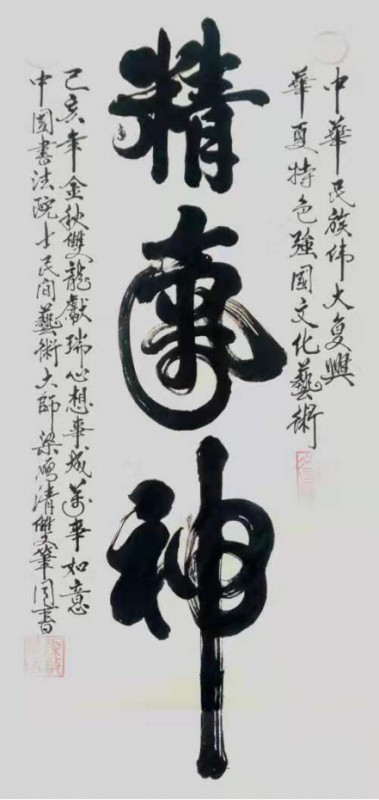 中華民族伟大复興
華夏特色強國文化藝術
精氣神
己亥年金秋雙龍獻瑞心想事成萬事如意
中國書法院士民间藝術大師梁清雙筆同書